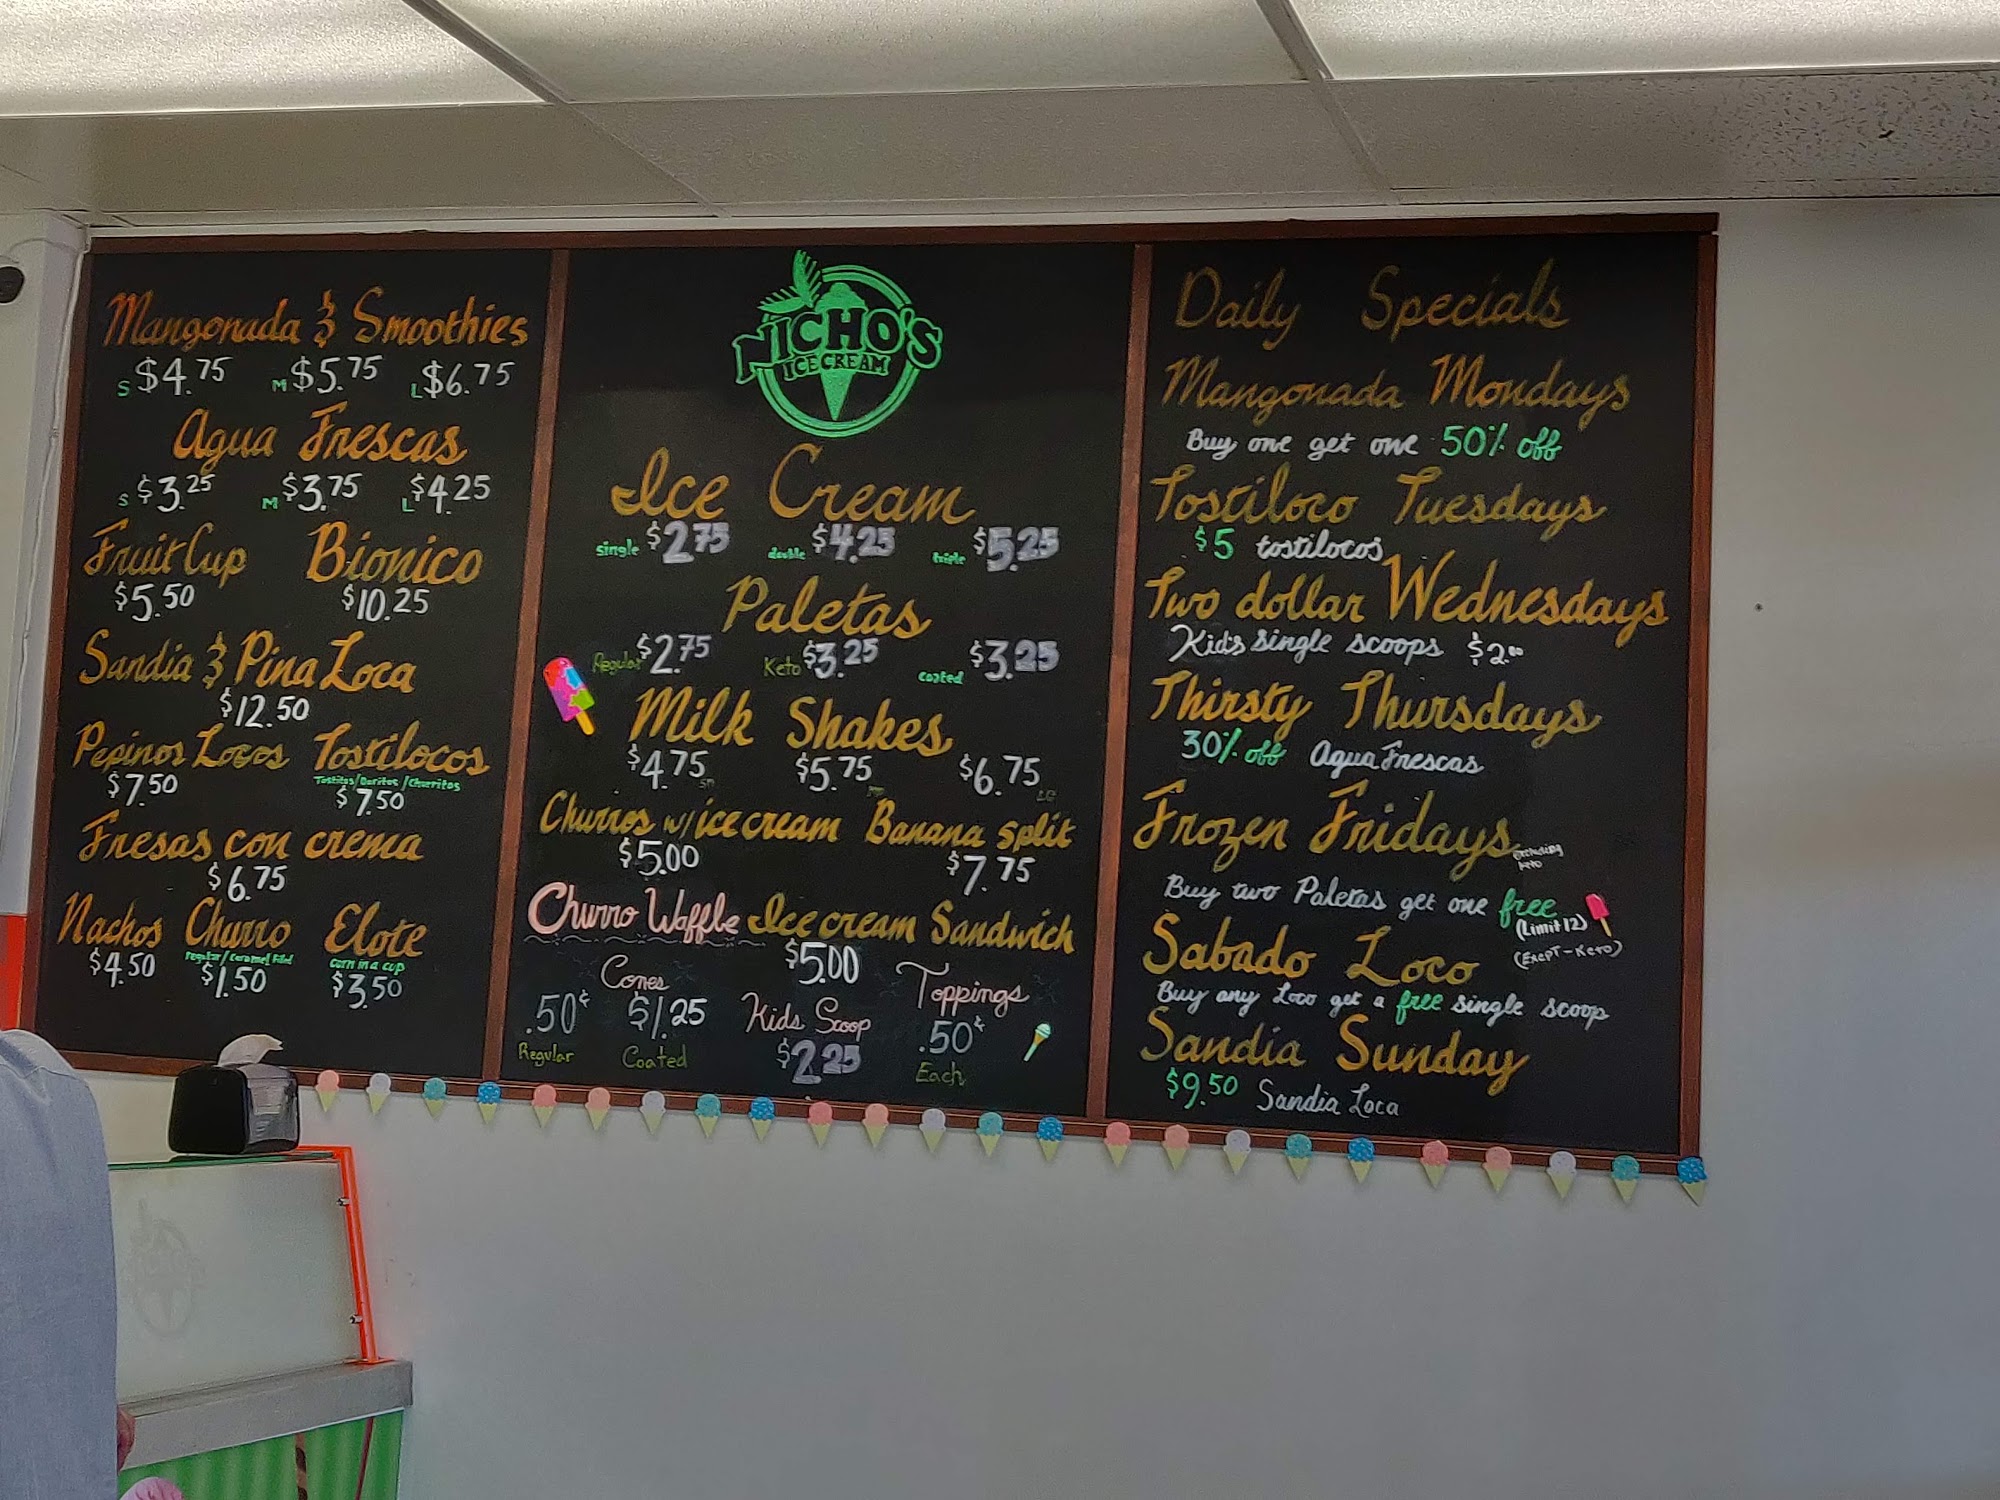 Mangonada & Smoothies
S $4.75 M $5.75 L $6.75
Agua Frescas
S $3.25 M $3.75 L $4.25
Fruit Cup Bionico
$5.50 $10.25
Sandia & Pina Loca
$12.50
Pepinos Locos Tostilocos
Tostitos/Doritos/Churritos
$7.50 $7.50
Fresas con crema
$6.75
Nachos Churro Elote
regular/Caramel Filled corn in a cup
$4.50 $1.50 $3.50
NICHO'S
ICE CREAM
Ice Cream
single $2.75 double $4.25 triple $5.25
Paletas
Regular $2.75 Keto $3.25 coated $3.25
Milk Shakes
$4.75 sm $5.75 $6.75 LG
Churros w/ ice cream Banana split
$5.00 $7.75
Churro Waffle Ice cream Sandwich
$5.00
Cones Toppings
.50¢ $1.25 Kids Scoop .50¢
Regular Coated $2.25 Each
Daily Specials
Mangonada Mondays
Buy one get one 50% off
Tostiloco Tuesdays
$5 tostilocos
Two dollar Wednesdays
Kid's single scoops $2.00
Thirsty Thursdays
30% off Agua Frescas
Frozen Fridays
excluding
keto
Buy two Paletas get one free
(Limit 12)
(Except-Keto)
Sabado Loco
Buy any Loco get a free single scoop
Sandia Sunday
$9.50 Sandia Loca